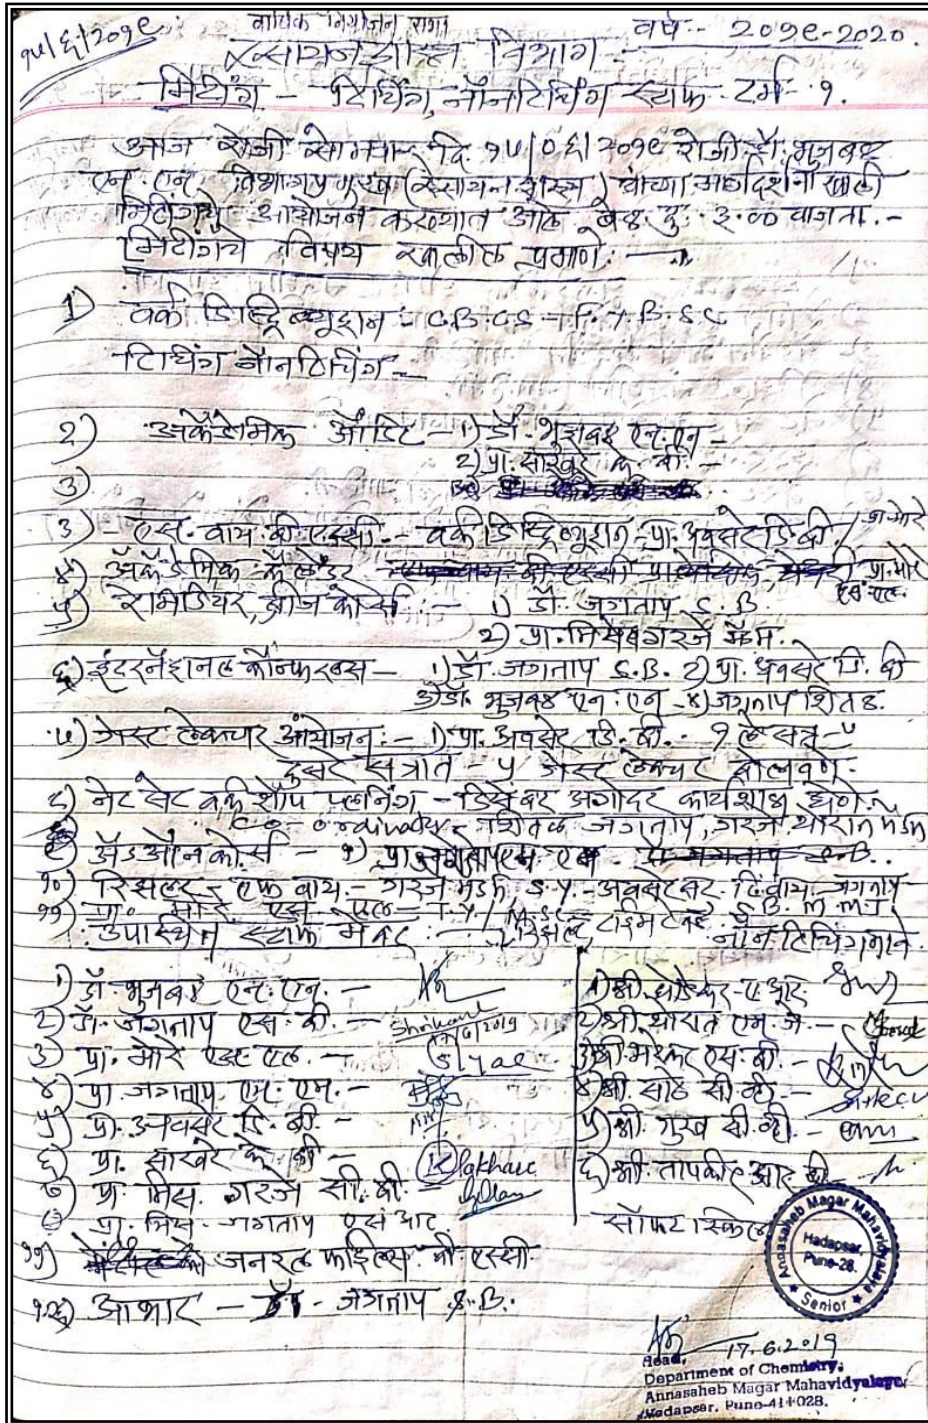 १५/६/२०१९
वार्षिक नियोजन सभा वर्ष - २०१९-२०२०.
रसायनशास्त्र विभाग
मिटींग - टिचिंग, नॉनटिचिंग स्टाफ टर्म - १.
आज रोजी सोमवार दि. १५/०६/२०१९ रोजी डॉ. भुजबळ
एन. एन. विभागप्रमुख (रसायन शास्त्र) यांच्या मार्गदर्शना खाली
मिटींगचे आयोजन करण्यात आले वेळ दु. ३.०० वाजता. -
मिटींगचे विषय खालील प्रमाणे: -
1) वर्क डिस्ट्रिब्युशन - C.B.C.S - F.Y.B.S.C
टिचिंग नॉनटिचिंग -
२) अकॅडेमिक ऑडिट - १) डॉ. भुजबळ एन. एन -
2) प्रा. साखरे के. बी. -
3)
३) - एस. वाय. बी. एस्सी. - वर्क डिस्ट्रिब्युशन - प्रा. अवसरे डि. बी. / प्रा. मोरे
४) अॅकॅडेमिक कॅलेंडर प्रा. मोरे
एस. एल.
५) रेमिडियर, ब्रीज कोर्स - 1) डॉ. जगताप S. B.
2) प्रा. मिसेस गरजे मॅम.
६) इंटरनॅशनल कॉन्फरन्स - १) डॉ. जगताप S.B. 2) प्रा. अवसरे डि. बी
3) डॉ. भुजबळ एन. एन - ४) जगताप शितल.
७) गेस्ट लेक्चर आयोजन - १) प्रा. अवसरे डि. बी. - १ ले सत्र - ५
दुसरे सत्रात - ५ गेस्ट लेक्चर बोलवणे.
८) नेट सेट वर्कशॉप प्लॅनिंग - डिसेंबर अगोदर कार्यशाळा घेणे.
co-ordinator - शितल जगताप, गरजे, थोरात मॅडम
९) अॅडऑन कोर्स - १) प्रा. जगताप एम एम.
१०) रिझल्ट - एफ वाय. - गरजे मॅडम S.Y. - अवसरे सर टि. वाय. जगताप
S.B. M M J
११) प्रा. मोरे एस. एल - T.Y. / M.Sc - रिझल्ट टाईमटेबल
उपस्थित स्टाफ मेंबर: - नॉन टिचिंग
१) डॉ. भुजबळ एन. एन. -
२) डॉ. जगताप एस. बी. - Shrikant
17/6/2019
३) प्रा. मोरे एस एल. -
४) प्रा. जगताप एम. एम. -
५) प्रा. अवसरे डि. बी. -
६) प्रा. साखरे के. बी - Sakhare
७) प्रा. मिस. गरजे सी. बी. -
८) प्रा. मिस. जगताप एस आर.
१) श्री. घोडेकर ए आर.
२) श्री. थोरात एम. जे. -
३) श्री. भरेकर एस. बी. -
४) श्री. साठे सी. व्ही. -
५) श्री. गुरव सी. व्ही. -
६) श्री. तापकीर आर. बी -
सॉफ्ट स्किल
११) जनरल फाईल्स बी. एस्सी
१२) आभार - डॉ. - जगताप S. B.
Annasaheb Magar Mahavidyalaya
Hadapsar,
Pune-28.
Senior
17.6.2019
Head,
Department of Chemistry,
Annasaheb Magar Mahavidyalaya,
Hadapsar, Pune-411028.